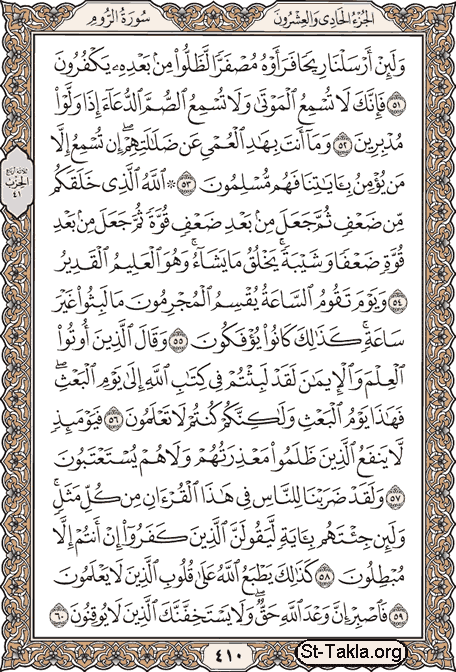 سُورَةُ الرُّومِ
الجُزْءُ الحَادِي وَالعِشْرُونَ
وَلَئِنْ أَرْسَلْنَا رِيحًا فَرَأَوْهُ مُصْفَرًّا لَّظَلُّوا۟ مِنۢ بَعْدِهِۦ يَكْفُرُونَ
٥١ فَإِنَّكَ لَا تُسْمِعُ ٱلْمَوْتَىٰ وَلَا تُسْمِعُ ٱلصُّمَّ ٱلدُّعَآءَ إِذَا وَلَّوْا۟
مُدْبِرِينَ ٥٢ وَمَآ أَنتَ بِهَٰدِ ٱلْعُمْىِ عَن ضَلَٰلَتِهِمْ ۖ إِن تُسْمِعُ إِلَّا
مَن يُؤْمِنُ بِـَٔايَٰتِنَا فَهُم مُّسْلِمُونَ ٥٣ ۞ ٱللَّهُ ٱلَّذِى خَلَقَكُم
مِّن ضَعْفٍ ثُمَّ جَعَلَ مِنۢ بَعْدِ ضَعْفٍ قُوَّةً ثُمَّ جَعَلَ مِنۢ بَعْدِ
قُوَّةٍ ضَعْفًا وَشَيْبَةً ۚ يَخْلُقُ مَا يَشَآءُ ۖ وَهُوَ ٱلْعَلِيمُ ٱلْقَدِيرُ
٥٤ وَيَوْمَ تَقُومُ ٱلسَّاعَةُ يُقْسِمُ ٱلْمُجْرِمُونَ مَا لَبِثُوا۟ غَيْرَ
سَاعَةٍ ۚ كَذَٰلِكَ كَانُوا۟ يُؤْفَكُونَ ٥٥ وَقَالَ ٱلَّذِينَ أُوتُوا۟
ٱلْعِلْمَ وَٱلْإِيمَٰنَ لَقَدْ لَبِثْتُمْ فِى كِتَٰبِ ٱللَّهِ إِلَىٰ يَوْمِ ٱلْبَعْثِ ۖ
فَهَٰذَا يَوْمُ ٱلْبَعْثِ وَلَٰكِنَّكُمْ كُنتُمْ لَا تَعْلَمُونَ ٥٦ فَيَوْمَئِذٍ
لَّا يَنفَعُ ٱلَّذِينَ ظَلَمُوا۟ مَعْذِرَتُهُمْ وَلَا هُمْ يُسْتَعْتَبُونَ
٥٧ وَلَقَدْ ضَرَبْنَا لِلنَّاسِ فِى هَٰذَا ٱلْقُرْءَانِ مِن كُلِّ مَثَلٍ ۚ
وَلَئِن جِئْتَهُم بِـَٔايَةٍ لَّيَقُولَنَّ ٱلَّذِينَ كَفَرُوٓا۟ إِنْ أَنتُمْ إِلَّا
مُبْطِلُونَ ٥٨ كَذَٰلِكَ يَطْبَعُ ٱللَّهُ عَلَىٰ قُلُوبِ ٱلَّذِينَ لَا يَعْلَمُونَ
٥٩ فَٱصْبِرْ إِنَّ وَعْدَ ٱللَّهِ حَقٌّ ۖ وَلَا يَسْتَخِفَّنَّكَ ٱلَّذِينَ لَا يُوقِنُونَ ٦٠
الحِزْبُ
٤١
٤١٠
St-Takla.org